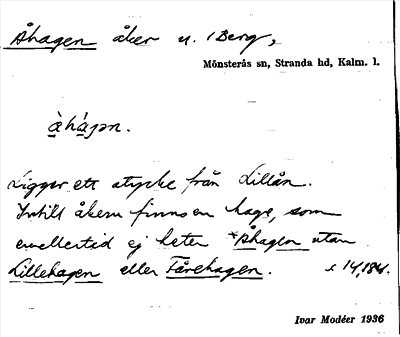 Åhagen åker u. Berg,
Mönsterås sn, Stranda hd, Kalm. l.
Ligger ett stycke från Lillån.
Intill åkern finns en hage, som
emellertid ej heter *Åhagen utan
Lillehagen eller Fårehagen. s 14,184.
Ivar Modéer 1936